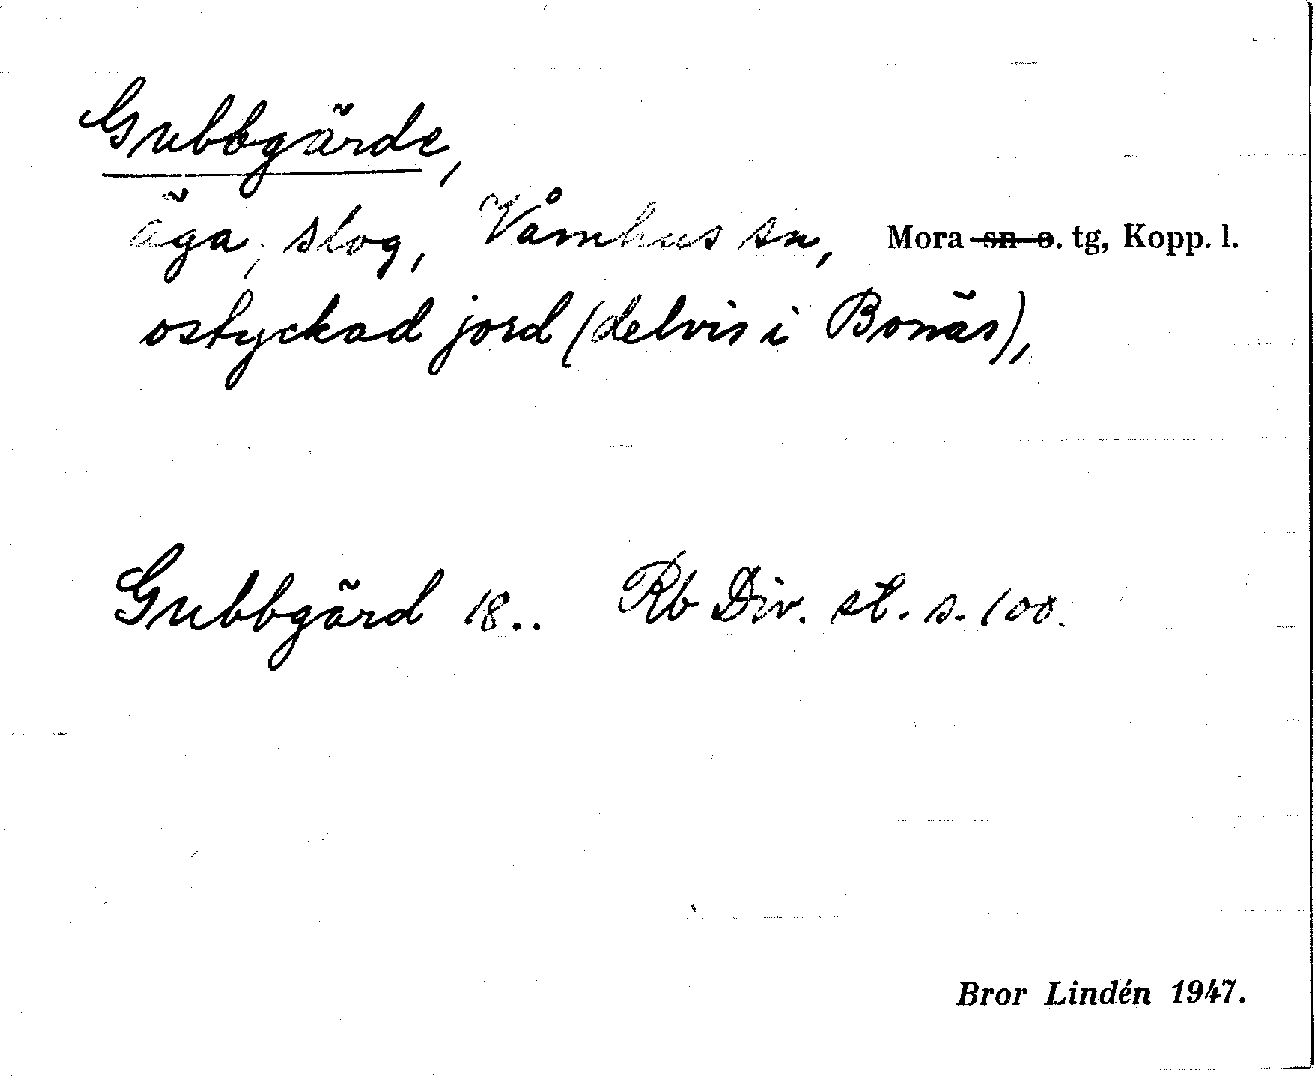 Gubbgärde,
äga, slog, Våmhus sn, Mora sn o. tg, Kopp. l.
ostyckad jord (delvis i Bonäs),
Gubbgärd 18.. Rb Div. st. s. 100.
Bror Lindén 1947.